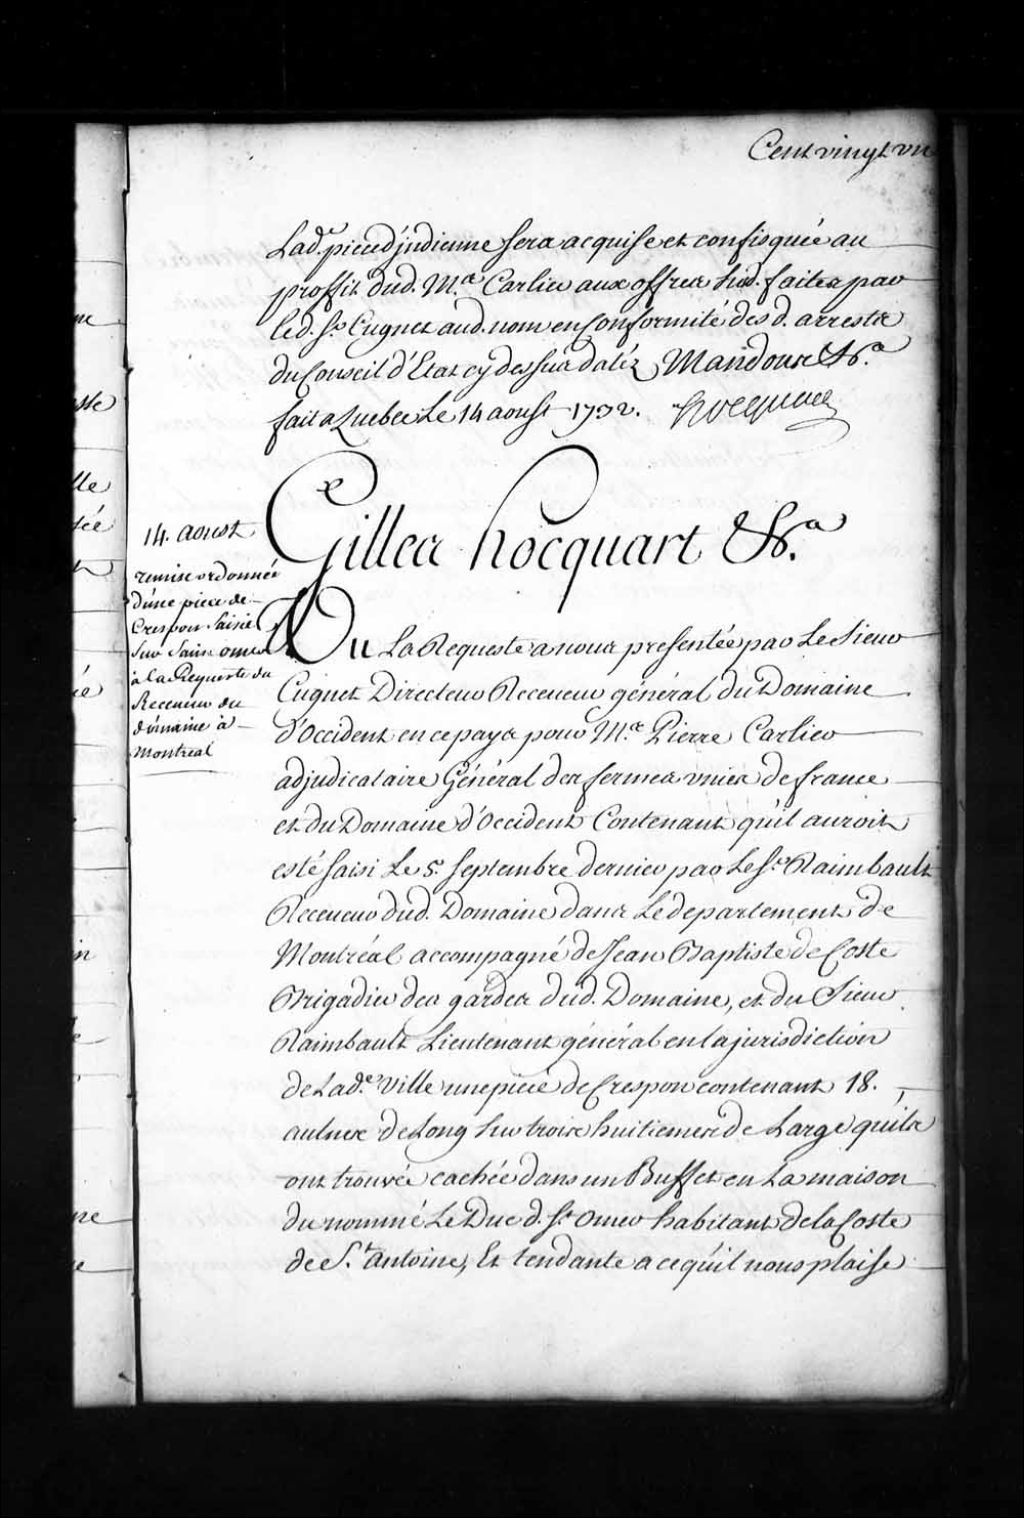 Cent vingt un
Lad.e piece d'indienne sera acquise et confisquée au
proffit dud. M.e Carlier aux offres susd. faites par
led. Sr Cugnet aud. nom en Conformité desd. arrests
du Conseil d'Etat cy dessus datéz Mandons &c.a
fait a Quebec Le 14 aoust 1732. hocquart
Gilles hocquart &c.a
14. aoust
remise ordonnée
d'une piece de
Crespon Saisie
Sur Saint omer
à la Requeste du
Receveur du
domaine à
Montreal
Vu La Requeste a nous presentée par Le Sieur
Cugnet Directeur Receveur général du Domaine
d'Occident en ce pays pour M.e Pierre Carlier
adjudicataire Général des fermes unies de france
et du Domaine d'Occident Contenant qu'il auroit
esté saisi Le 5. Septembre dernier par Le Sr Raimbault
Receveur dud. Domaine dans Le departement de
Montréal accompagné de Jean Baptiste de Coste
Brigadier des gardes dud. Domaine, et du Sieur
Raimbault Lieutenant général en la jurisdiction
de Lad.e ville une piece de Crespon contenant 18.
aulnes de Long sur trois huitiemes de Large qu'ils
ont trouvée cachée dans un Buffet en La maison
du nommé Le Duc d. St Omer habitant de la Coste
de St Antoine, Et tendante a ce qu'il nous plaise